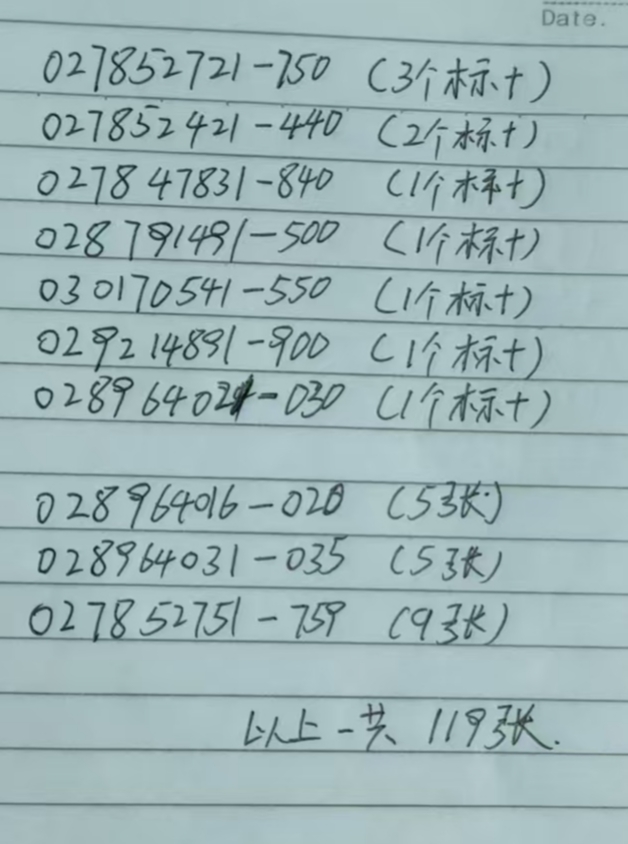 Date.
027852721-750 (3个标十)
027852421-440 (2个标十)
027847831-840 (1个标十)
028791491-500 (1个标十)
030170541-550 (1个标十)
029214891-900 (1个标十)
028964021-030 (1个标十)
028964016-020 (5张)
028964031-035 (5张)
027852751-759 (9张)
以上一共 119张.